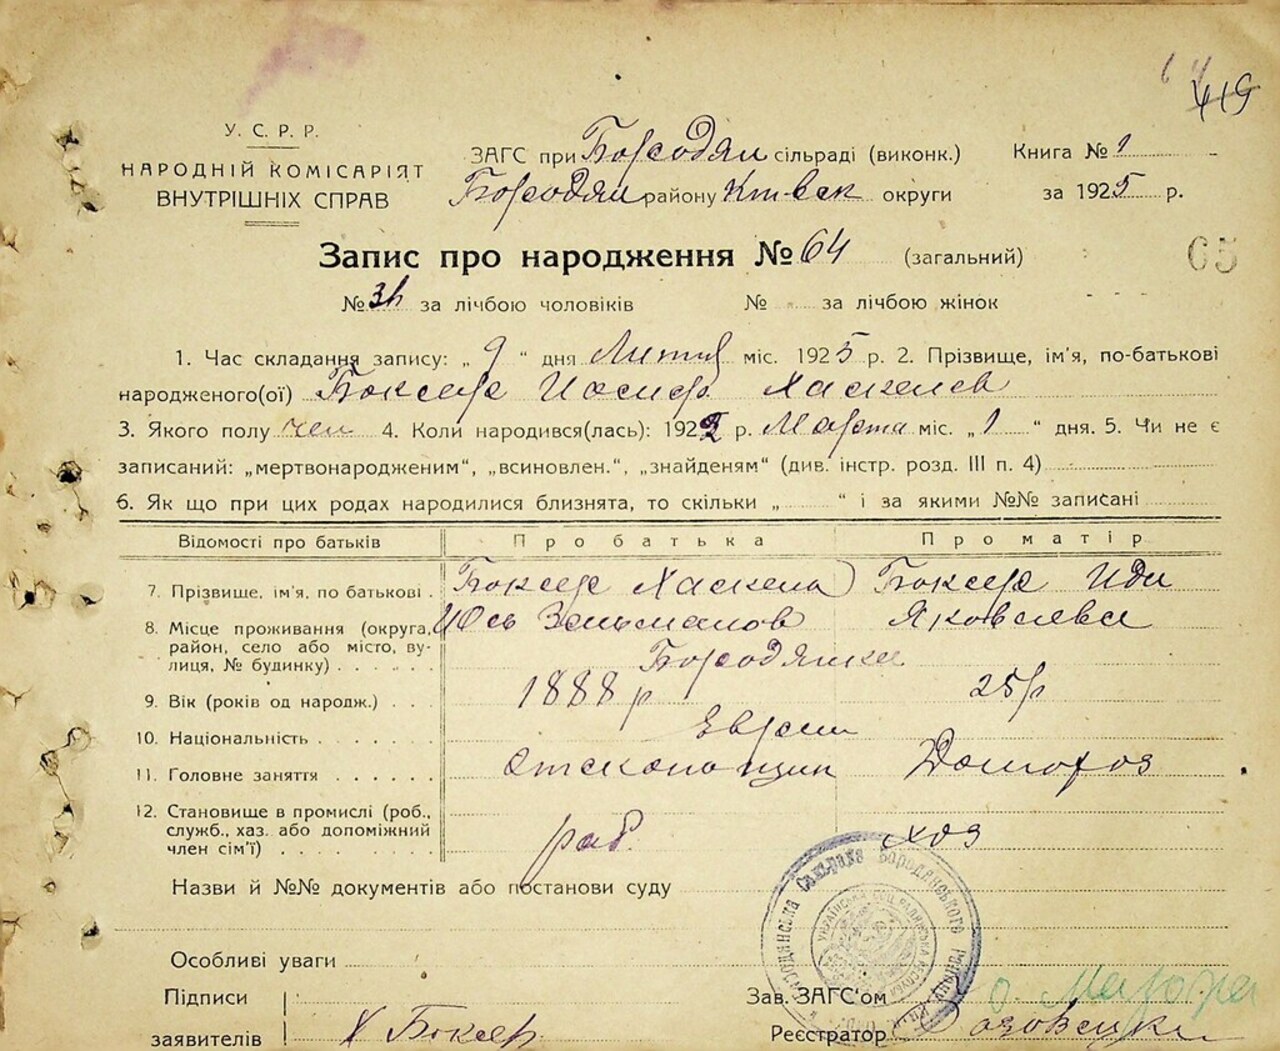 419
У. С. Р. Р.
НАРОДНІЙ КОМІСАРІЯТ
ВНУТРІШНІХ СПРАВ
ЗАГС при Бородян сільраді (виконк.) Книга № 1
Бородян району Київск округи за 1925 р.
Запис про народження № 64 (загальний)
65
№ за лічбою чоловіків № за лічбою жінок
1. Час складання запису: „ 9 “ дня Лютня міс. 1925 р. 2. Прізвище, ім'я, по-батькові
народженого(ої) Боксер Иосиф Хаскелев
3. Якого полу чел 4. Коли народився(лась): 192 р. Марта міс. „ 1 “ дня. 5. Чи не є
записаний: „мертвонародженим“, „всиновлен.“, „знайденям“ (див. інстр. розд. III п. 4)
6. Як що при цих родах народилися близнята, то скільки „ “ і за якими №№ записані
Відомості про батьків Про батька Про матір
7. Прізвище, ім'я, по батькові . Боксер Хаскель Боксер Иди
Зельманов Яковлева
8. Місце проживання (округа,
район, село або місто, ву-
лиця, № будинку) Бородянка
9. Вік (років од народж.) . . . 1888 р 25 р
10. Національність Евреи
11. Головне заняття Домохоз
12. Становище в промислі (роб.,
служб., хаз. або допоміжний
член сім'ї) раб. хоз
Назви й №№ документів або постанови суду
Особливі уваги
Підписи
заявителів Х Боксер
Зав. ЗАГС'ом
Реєстратор
Сільрада Бородянського Району
УКРАЇНСЬКА СОЦ. РАДЯНСЬКА